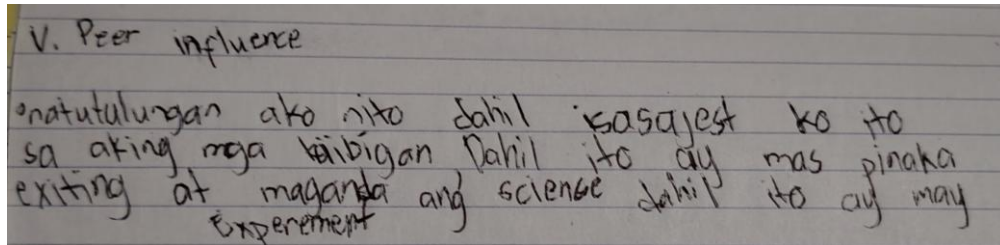 V. Peer influence
natutulungan ako nito dahil isasajest ko ito
sa aking mga kaibigan, Dahil ito ay mas pinaka
exiting at maganda ang science dahil ito ay may
Experement